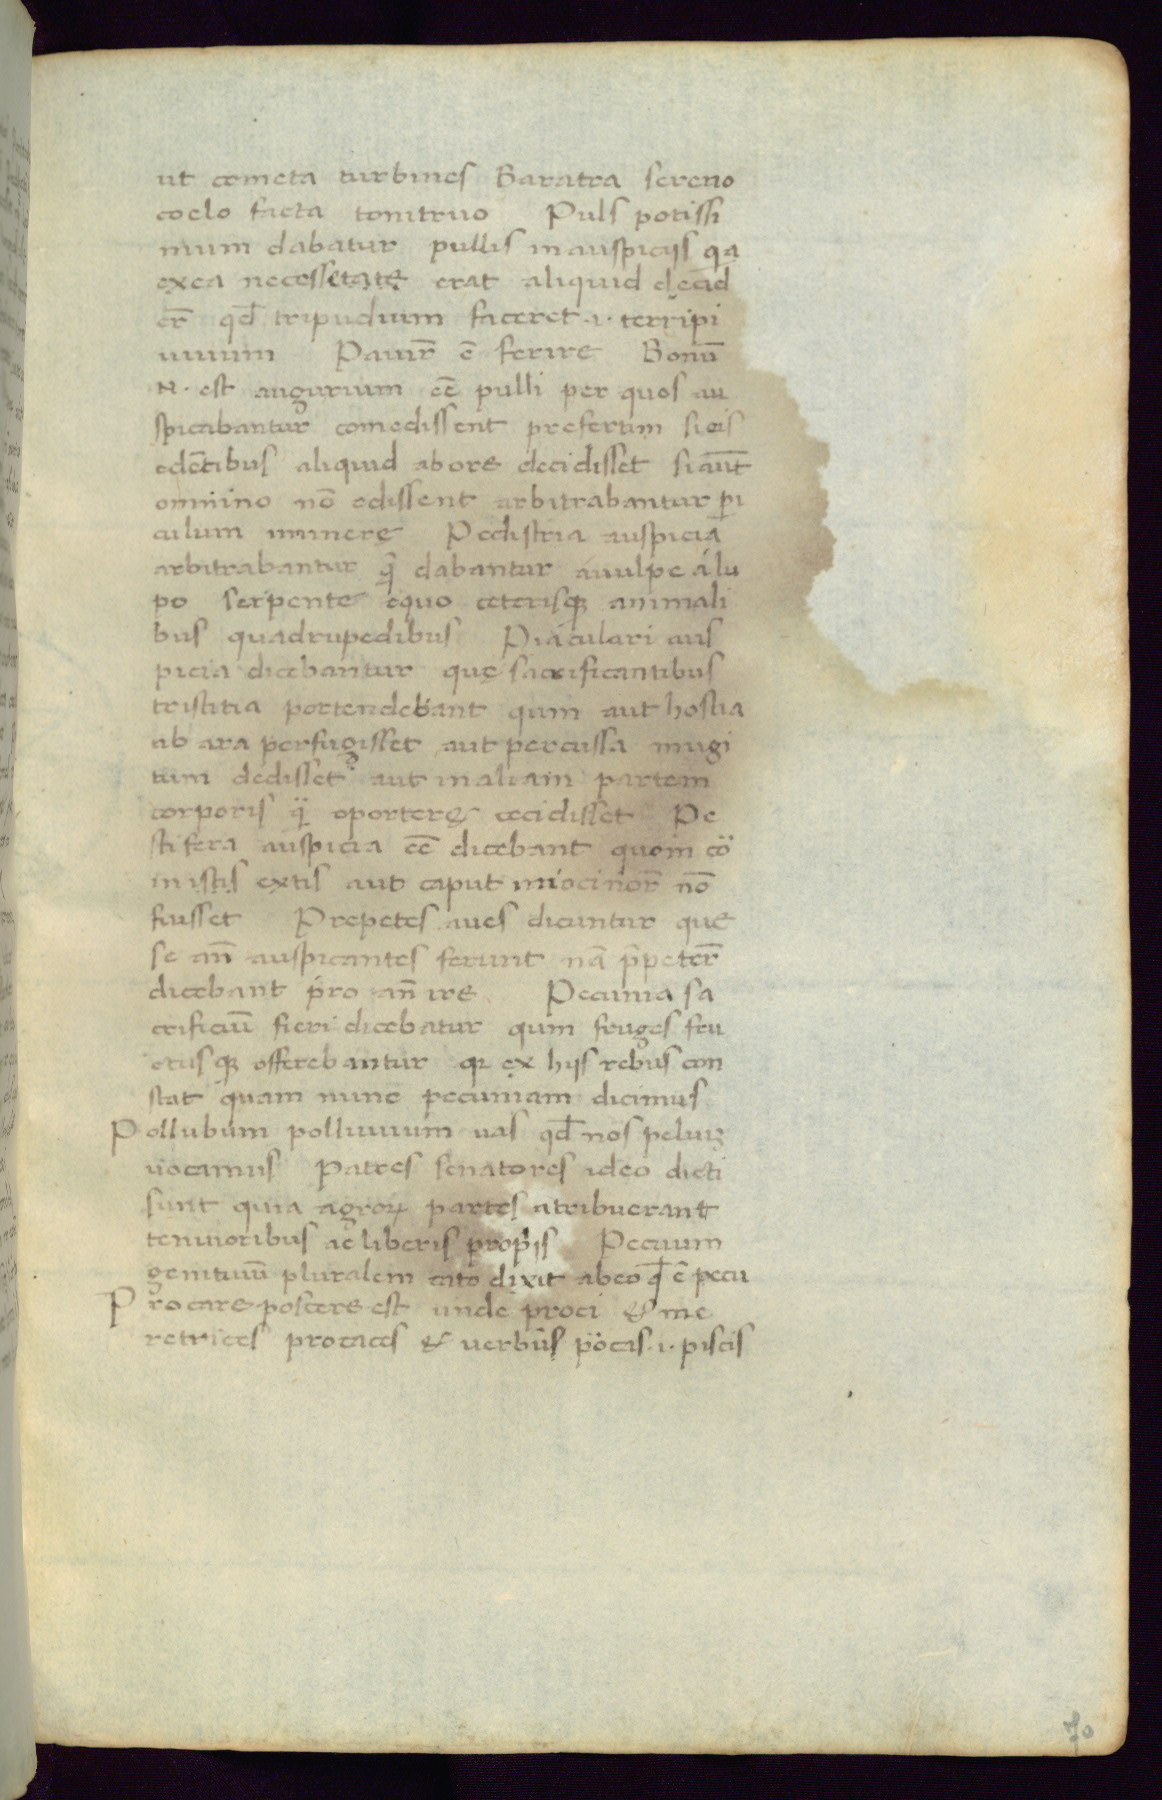 ut cometa turbines Baratra sereno
coelo facta tonitruo Puls potissi
mum dabatur pullis in auspicijs qa
exea necessetate erat aliquid decid
er̄ qd̄ tripudium faceret .i. terripi
uuium Pauir̄ ē ferire Bonū
N. est augurium eē pulli per quos au
spicabantur comedissent presertim sieis
edētibus aliquid abore decidisset siaut̄
omnino nō edissent arbitrabantur pi
culum iminere Pedistria auspicia
arbitrabantur q̄ dabantur áuulpe álu
po serpente equo ceterisqꝫ animali
bus quadrupedibus Piaculari aus
picia dicebantur quę sacrificantibus
tristitia portendebant qum aut hostia
ab ara perfugisset aut percussa mugi
tum dedisset aut inaliam partem
corporis q̄ oporterę cecidisset Pe
stifera auspicia eē dicebant quom cō
inistis extis aut caput iniocinor̄ nō
fuisset Prepetes aues dicuntur que
se an̄ auspicantes ferunt nā p̄peter̄
dicebant pro an̄ ire Pecunia sa
crificiū fieri dicebatur qum fruges fru
ctusqꝫ offerebantur qꝫ ex hijs rebus con
stat quam nunc pecuniam dicimus
Pollubum polluuium uas qd̄ nos peluiꝫ
uocamus Patres senatores ideo dicti
sunt quia agroꝝ partes atribuerant
tenuioribus ac liberis proprijs Pecuum
genituiū pluralem cato dixit abeo q̄ ē pecu
Procare poscere est unde proci & me
retrices procaces & uerbūs p̈ocas .i. piscis
70